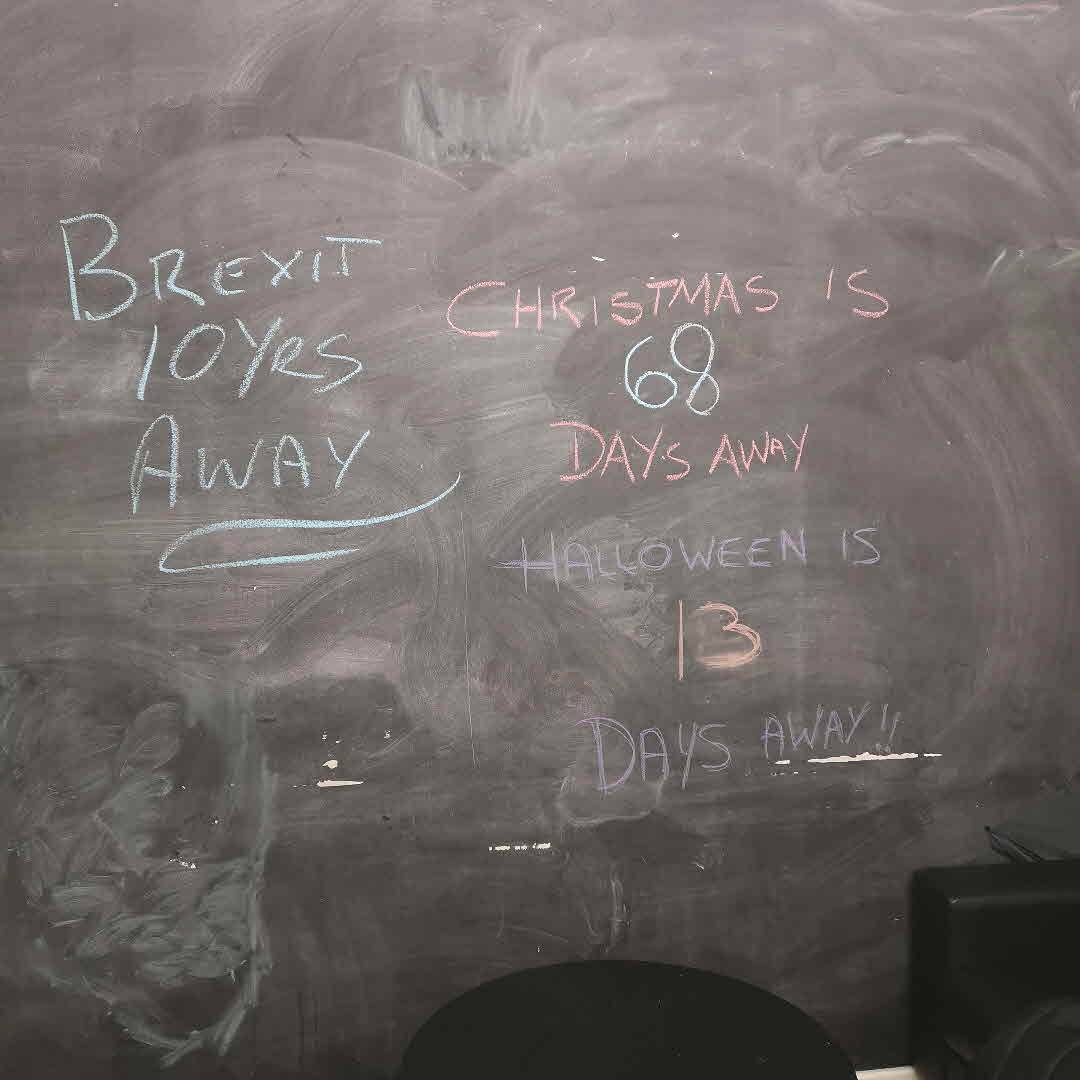 BREXIT
10YRS
AWAY
CHRISTMAS IS
68
DAYS AWAY
HALLOWEEN IS
13
DAYS AWAY!!